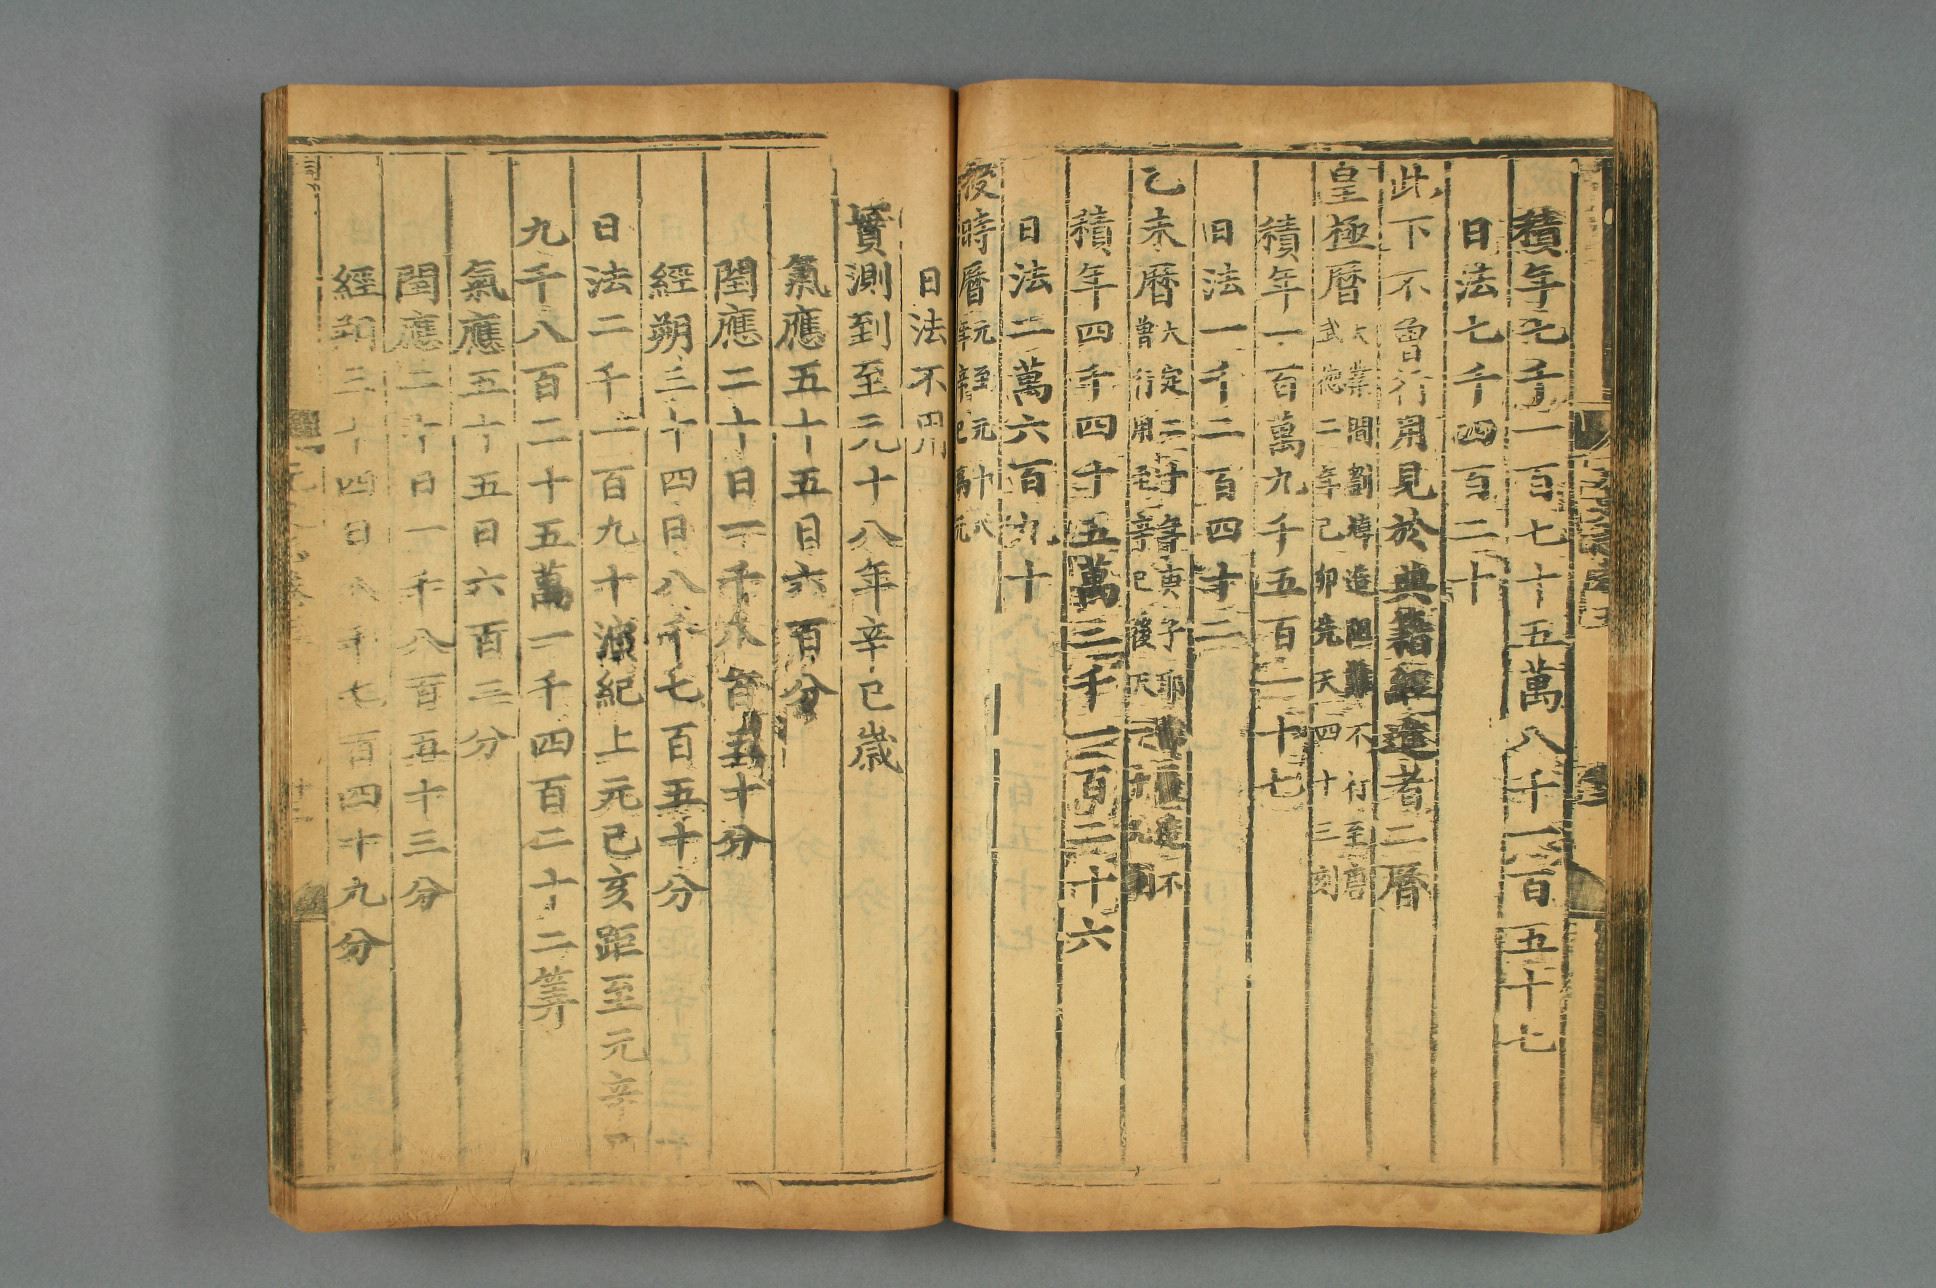 積年
一百七十五萬八千一百五十七
日法七千四百二十
此下不曾行用見於典籍經進者二曆
皇極曆
大業間劉焯造阻難不行至唐
武德二年己卯先天四十三刻
積年一百萬九千五百一十七
日法一千二百四十二
乙未曆
大定二十年庚子耶律履造不
曾行用至辛巳後天一十九刻
積年四千四十五萬三千一百二十六
日法二萬六百九十
授時曆
元至元十八
年辛巳為元
日法不用
實測到至元十八年辛巳歲
氣應五十五日六百分
閏應二十日一千八百五十分
經朔三十四日八千七百五十分
日法二千一百九十演紀上元己亥距至元辛巳
九千八百二十五萬一千四百二十二筭
氣應五十五日六百三分
閏應二十日一千八百五十三分
經朔三十四日八千七百四十九分